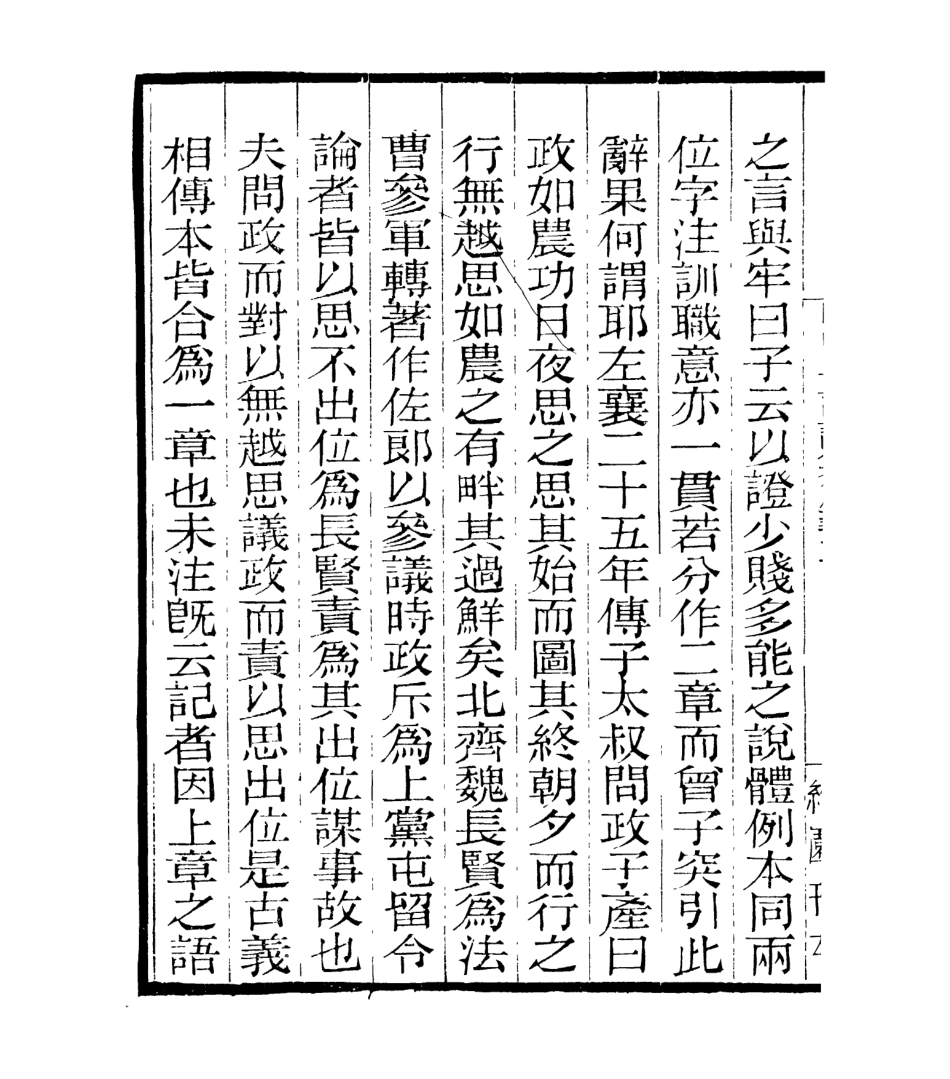 之言與牢曰子云以證少賤多能之說體例本同兩
位字注訓職意亦一貫若分作二章而曾子突引此
辭果何謂耶左襄二十五年傳子太叔問政子產曰
政如農功日夜思之思其始而圖其終朝夕而行之
行無越思如農之有畔其過鮮矣北齊魏長賢爲法
曹參軍轉著作佐郎以參議時政斥爲上黨屯留令
論者皆以思不出位爲長賢責爲其出位謀事故也
夫問政而對以無越思議政而責以思出位是古義
相傳本皆合爲一章也未注旣云記者因上章之語